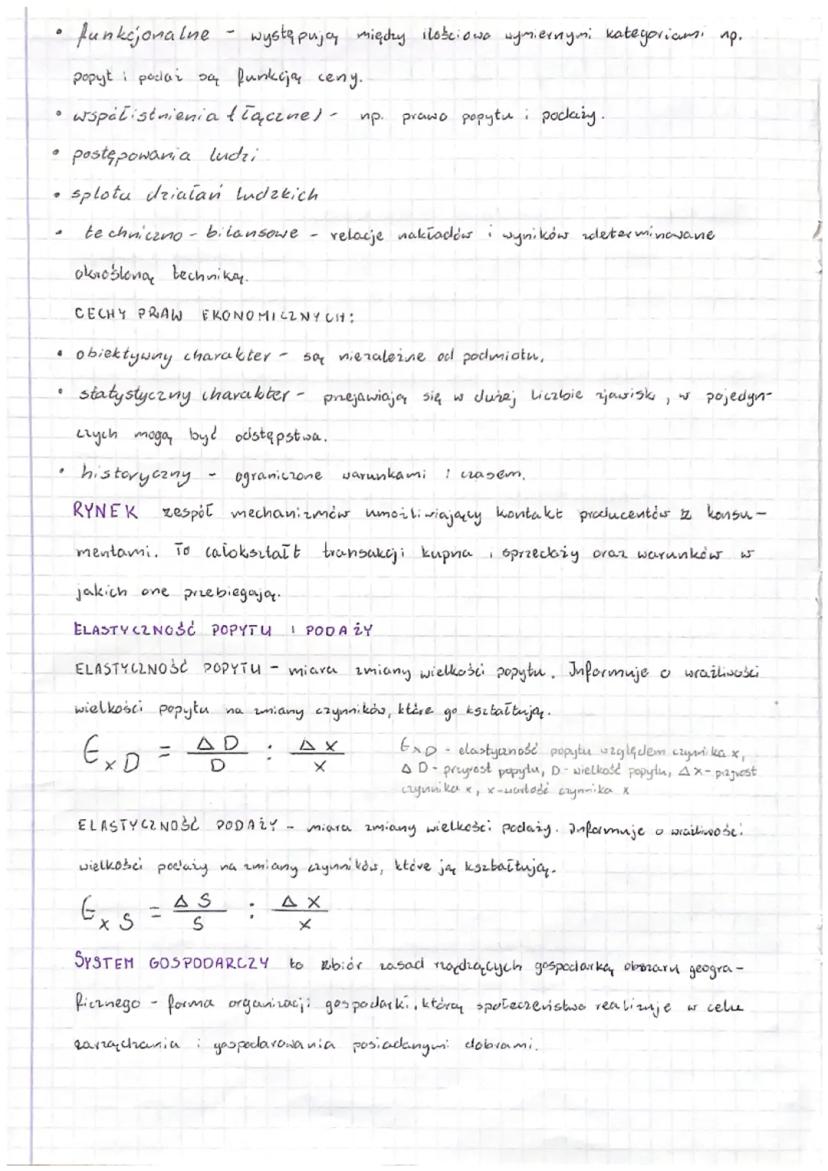 • funkcjonalne - występują między ilościowo wymiernymi kategoriami np.
popyt i podaż są funkcją ceny.
• współistnienia (łączne) - np. prawo popytu i podaży.
• postępowania ludzi
• splotu działań ludzkich
• techniczno - bilansowe - relacje nakładów i wyników zdeterminowane
określoną techniką.
CECHY PRAW EKONOMICZNYCH:
• obiektywny charakter - są niezależne od podmiotu,
• statystyczny charakter - przejawiają się w dużej liczbie zjawisk, w pojedyn-
czych mogą być odstępstwa.
• historyczny - ograniczone warunkami i czasem.
RYNEK zespół mechanizmów umożliwiający kontakt producentów z konsu-
mentami. To całokształt transakcji kupna i sprzedaży oraz warunków w
jakich one przebiegają.
ELASTYCZNOŚĆ POPYTU I PODAŻY
ELASTYCZNOŚĆ POPYTU - miara zmiany wielkości popytu. Informuje o wrażliwości
wielkości popytu na zmiany czynników, które go kształtują.
ExD = ΔD/D : Δx/x
ExD - elastyczność popytu względem czynnika x,
ΔD - przyrost popytu, D - wielkość popytu, Δx - przyrost
czynnika x, x - wartość czynnika x
ELASTYCZNOŚĆ PODAŻY - miara zmiany wielkości podaży. Informuje o wrażliwości
wielkości podaży na zmiany czynników, które ją kształtują.
ExS = ΔS/S : Δx/x
SYSTEM GOSPODARCZY to zbiór zasad rządzących gospodarką obszaru geogra-
ficznego - forma organizacji gospodarki, którą społeczeństwo realizuje w celu
zarządzania i gospodarowania posiadanymi dobrami.